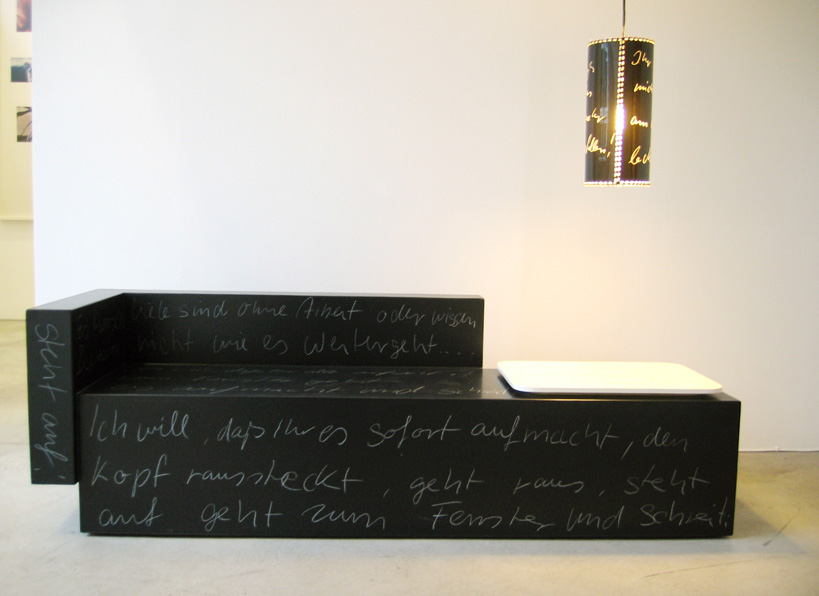 Ihr
mich
am
steht auf!
viele sind ohne Arbeit oder wissen
nicht wie es weitergeht....
und
Ich will, daß Ihr es sofort aufmacht, den
Kopf raussteckt, geht raus, steht
auf geht zum Fenster und schreit: